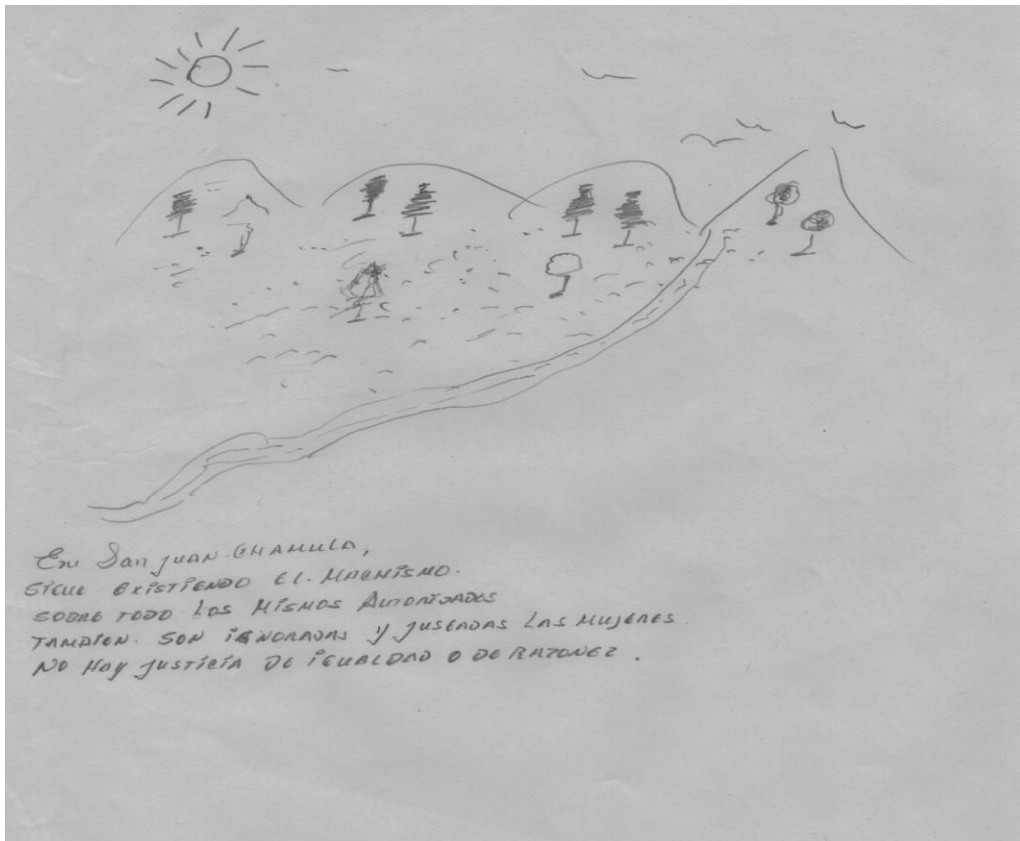 En San juan CHAMULA,
SIGUE EXISTIENDO EL. MACHISMO.
SOBRE TODO LAS MISMAS AUTORIDADES
TAMBIEN. SON IGNORADAS y JUSGADAS LAS MUJERES.
NO HAy JUSTICIA DE IGUALDAD O DE RAZONEZ.